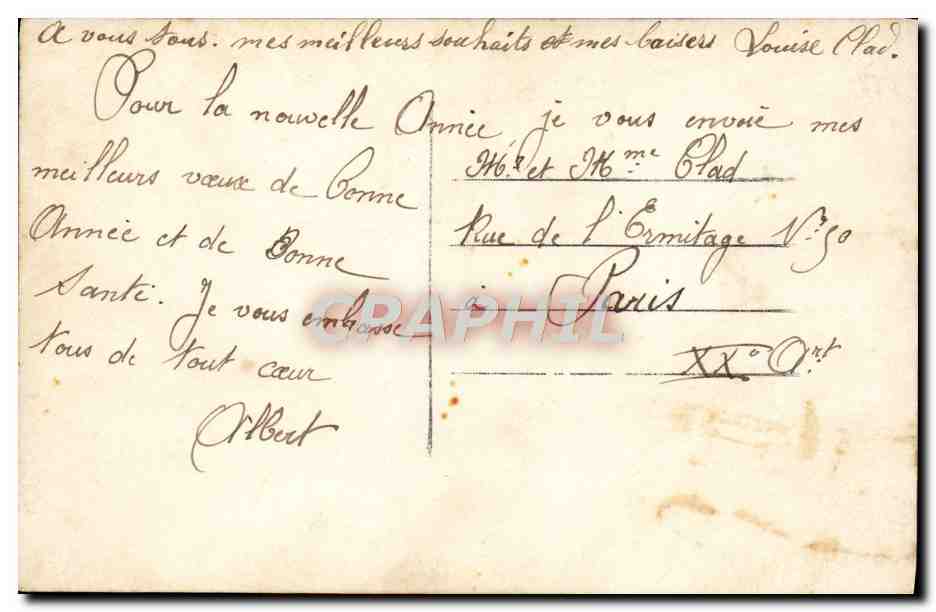 A vous tous. mes meilleurs souhaits et mes baisers Louise Clad.
Pour la nouvelle Année je vous envoie mes
meilleurs vœux de bonne
Année et de Bonne
Santé. Je vous embasse
tous de tout cœur
Albert
Mr et Mme Clad
Rue de l'Ermitage No 50
à Paris
XXe Art
CRAPHIL